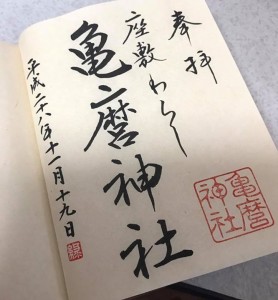 奉拝
座敷わらし
亀麿神社
平成二十八年十一月十九日
亀麿
神社